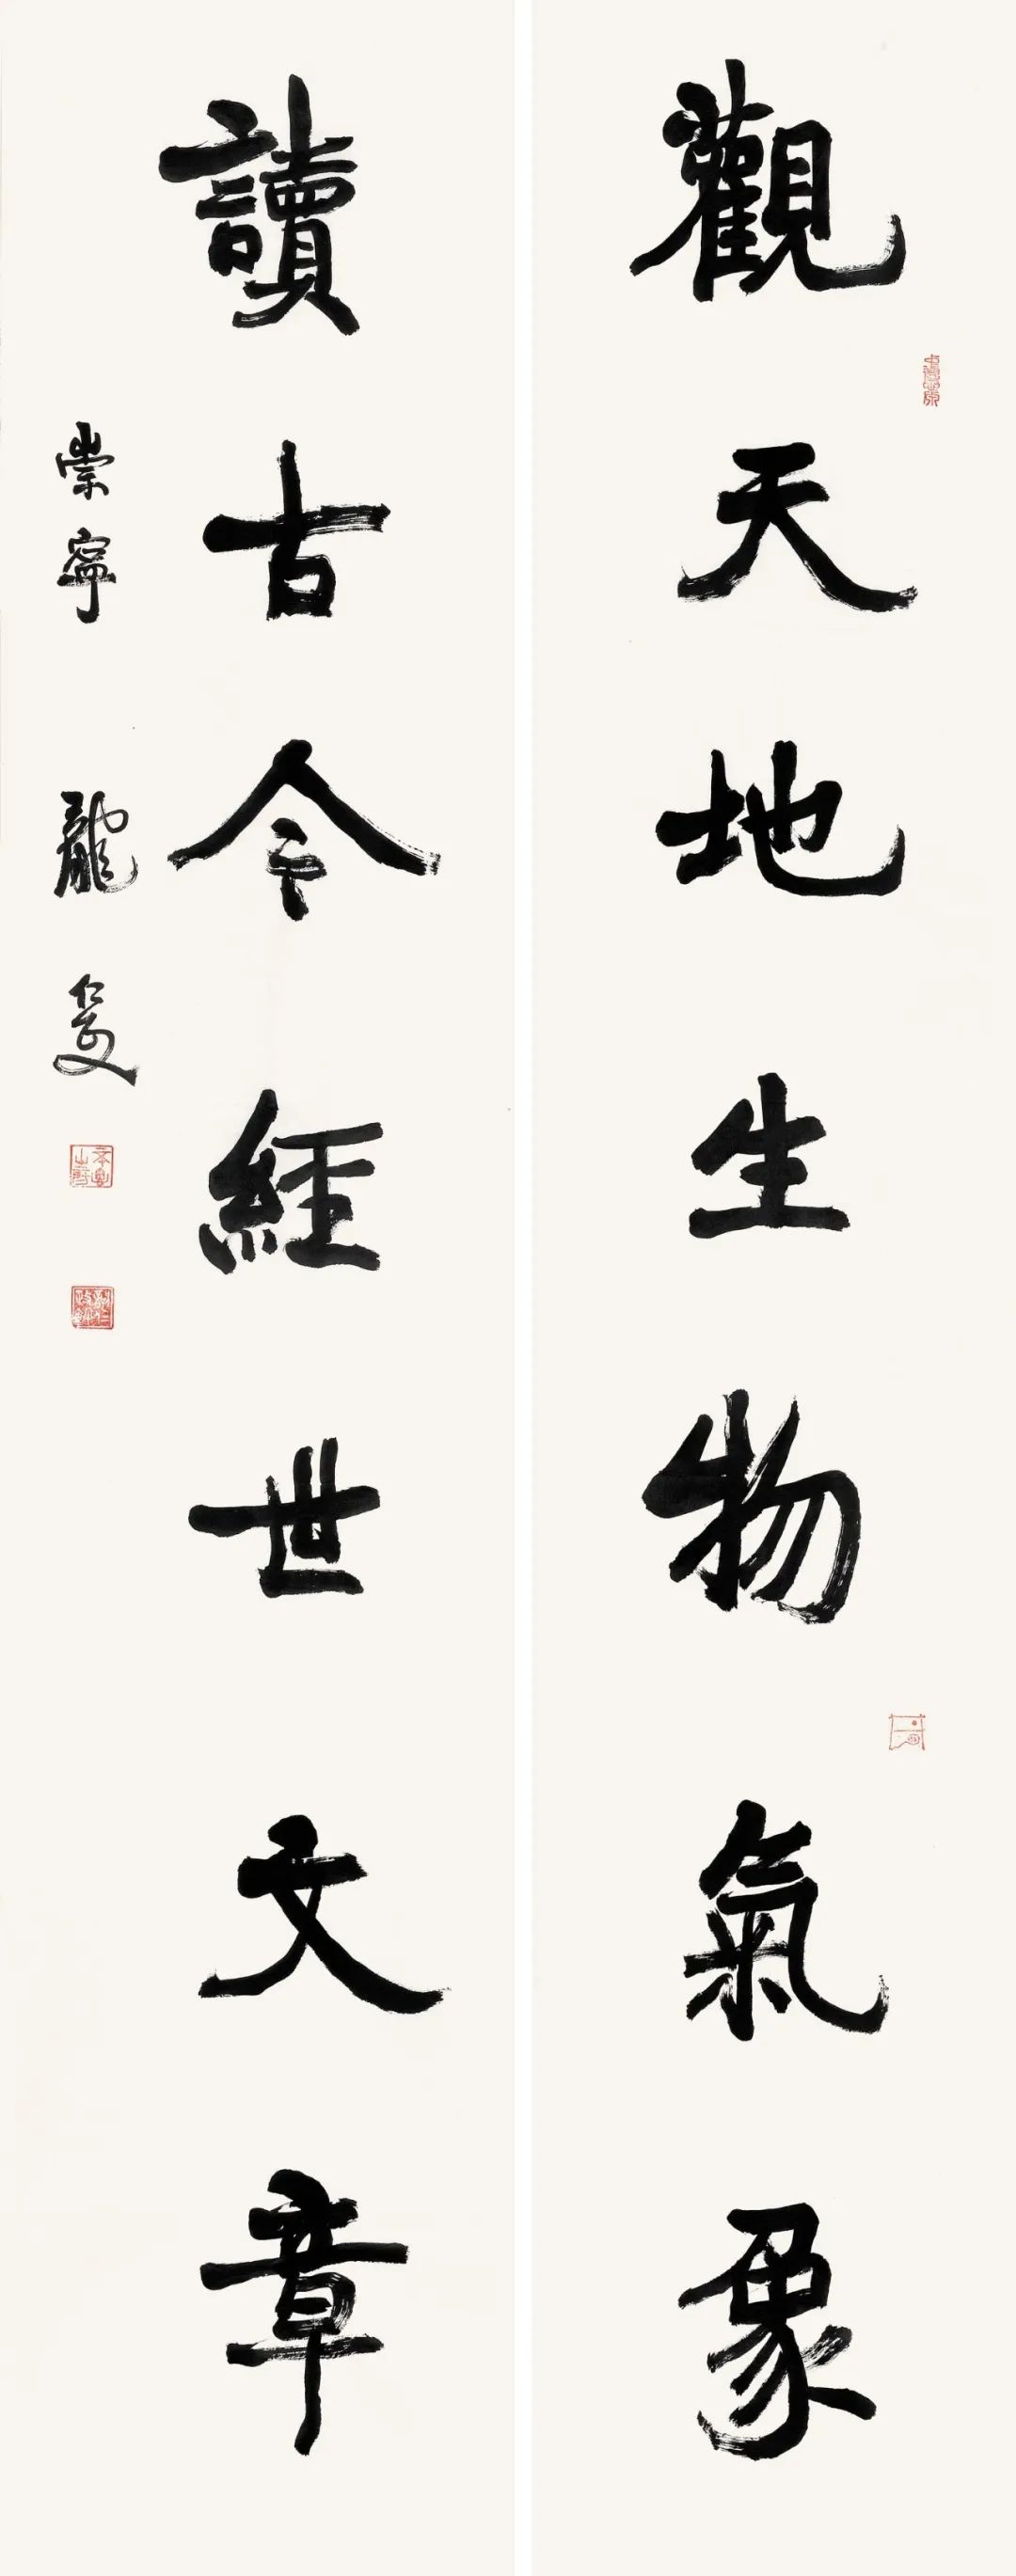 觀天地生物氣象
讀古今經世文章
崇寧 龍仁夋